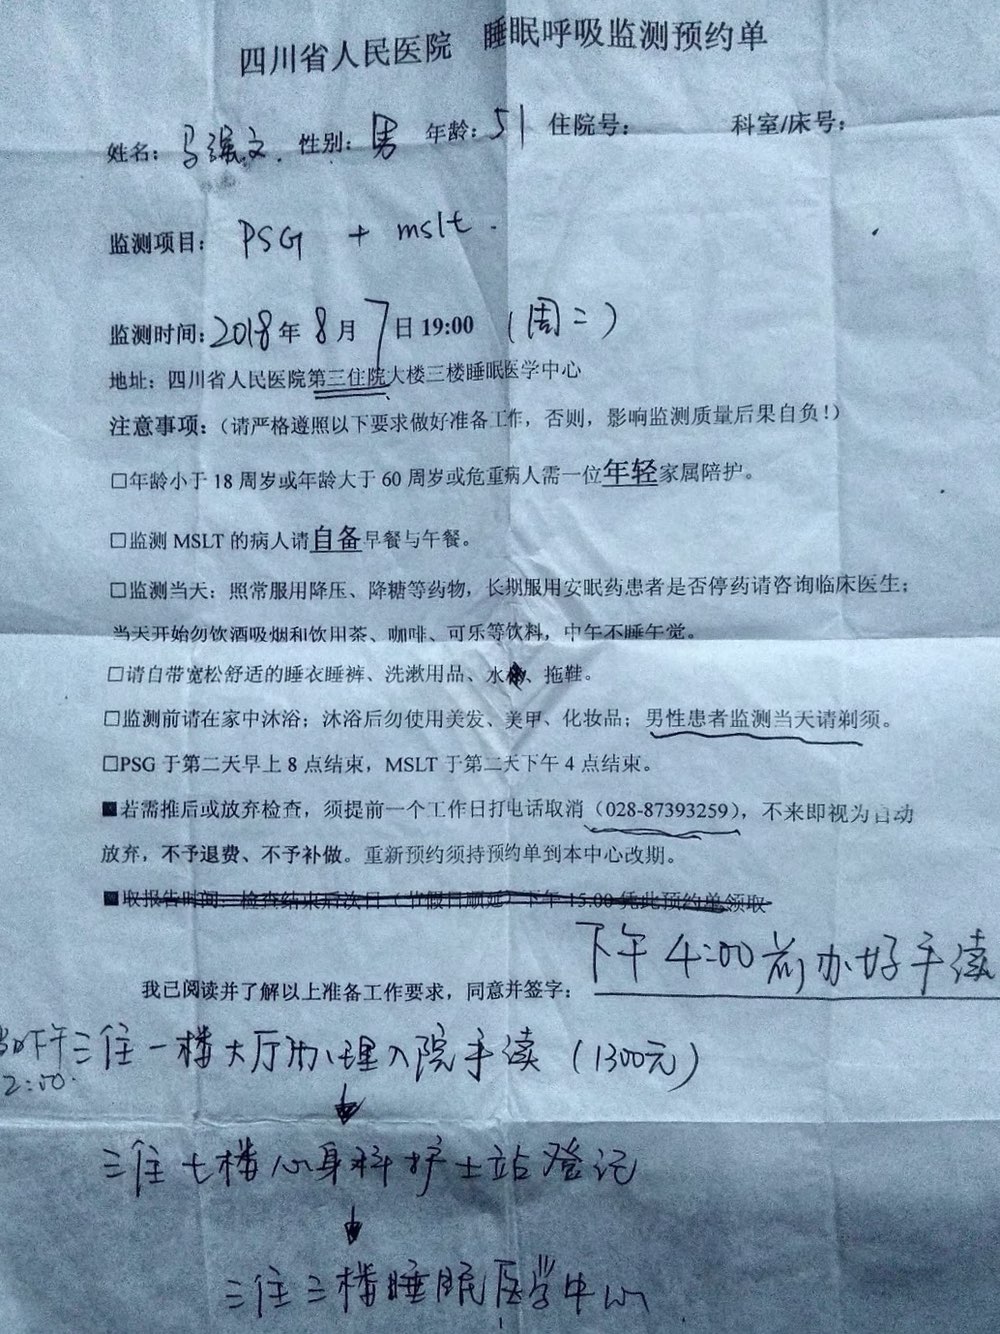 四川省人民医院 睡眠呼吸监测预约单
姓名：马强文. 性别：男 年龄：51 住院号： 科室/床号：
监测项目： PSG + mslt.
监测时间：2018年8月7日 19:00 （周二）
地址：四川省人民医院第三住院大楼三楼睡眠医学中心
注意事项：（请严格遵照以下要求做好准备工作，否则，影响监测质量后果自负！）
□年龄小于 18 周岁或年龄大于 60 周岁或危重病人需一位年轻家属陪护。
□监测 MSLT 的病人请自备早餐与午餐。
□监测当天：照常服用降压、降糖等药物，长期服用安眠药患者是否停药请咨询临床医生；
当天开始勿饮酒吸烟和饮用茶、咖啡、可乐等饮料，中午不睡午觉。
□请自带宽松舒适的睡衣睡裤、洗漱用品、水、拖鞋。
□监测前请在家中沐浴；沐浴后勿使用美发、美甲、化妆品；男性患者监测当天请剃须。
□PSG 于第二天早上 8 点结束，MSLT 于第二天下午 4 点结束。
■若需推后或放弃检查，须提前一个工作日打电话取消（028-87393259），不来即视为自动
放弃，不予退费、不予补做。重新预约须持预约单到本中心改期。
■取报告时间：检查结束后次日（节假日顺延）下午 15:00 凭此预约单领取
下午4:00前办好手续
我已阅读并了解以上准备工作要求，同意并签字：
下午 三住一楼大厅办理入院手续（1300元）
2:00.
三住七楼心身科护士站登记
三住三楼睡眠医学中心